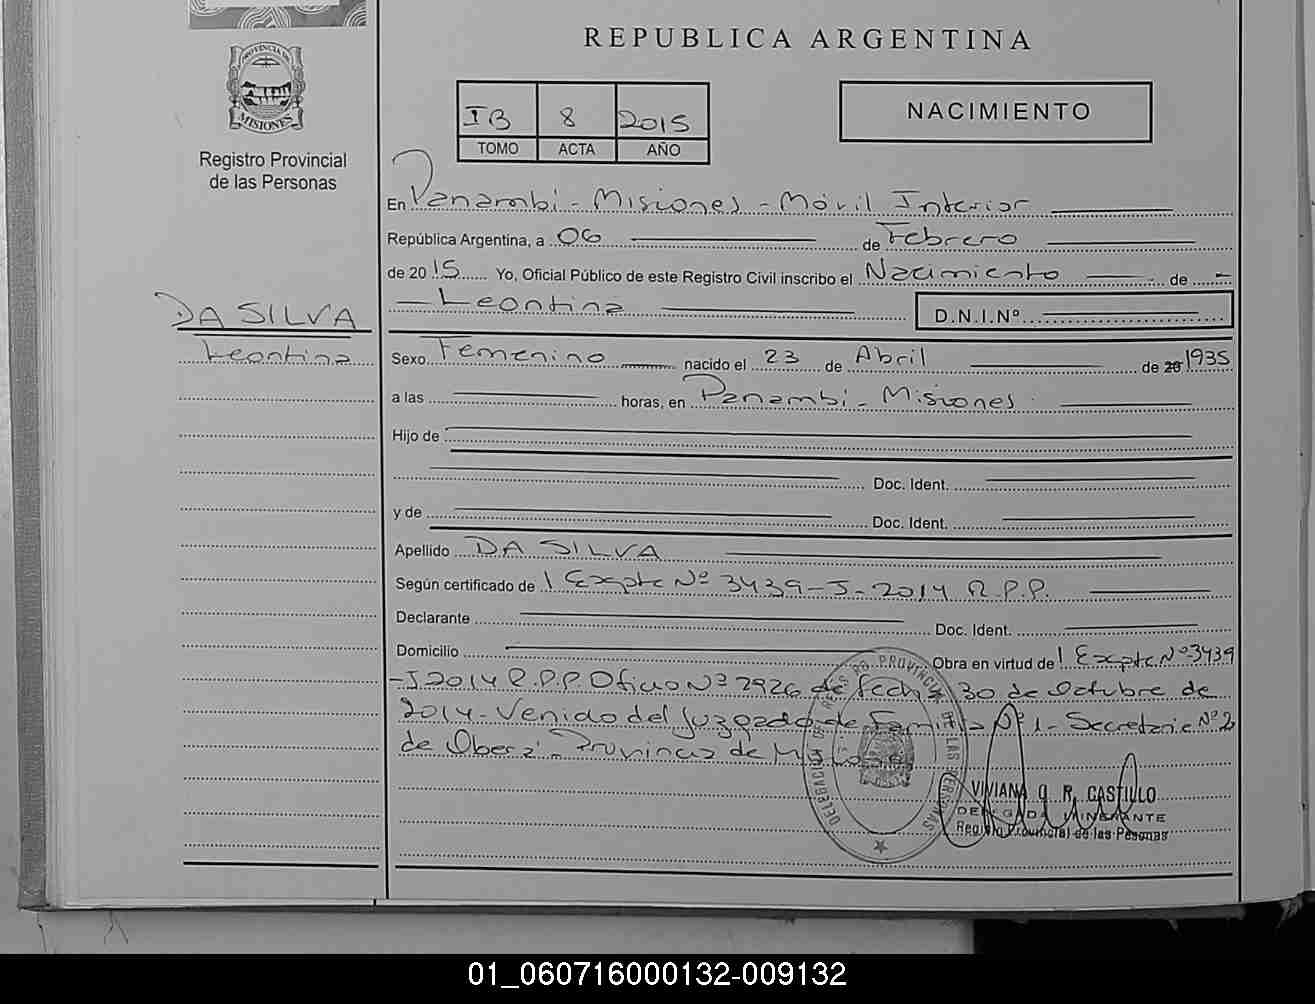 REPUBLICA ARGENTINA
PROVINCIA DE
MISIONES
Registro Provincial
de las Personas
IB 8 2015
TOMO ACTA AÑO
NACIMIENTO
En Panambi - Misiones - Móvil Interior
República Argentina, a 06 de Febrero
de 2015 Yo, Oficial Público de este Registro Civil inscribo el Nacimiento de
Leontina D.N.I.Nº
DA SILVA
Leontina
Sexo Femenino nacido el 23 de Abril de 20 1935
a las horas, en Panambi - Misiones
Hijo de
Doc. Ident.
y de Doc. Ident.
Apellido DA SILVA
Según certificado de 1 Expte Nº 3439-J-2014 R.P.P.
Declarante Doc. Ident.
Domicilio Obra en virtud de 1 Expte Nº 3439
-J 2014 R.P.P. Oficio Nº 2926 de fecha 30 de Octubre de
2014 - Venido del Juzgado de Familia Nº 1 - Secretaria Nº 2
de Oberá, Provincia de Misiones
VIVIANA R. CASTILLO
DELEGADA ITINERANTE
Registro Provincial de las Personas
01_060716000132-009132